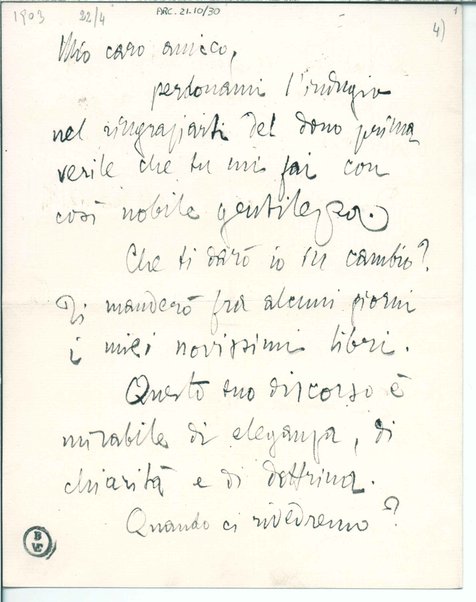 1903 22/4 ARC. 21.10/30 1
4)
Mio caro amico,
perdonami l'indugio
nel ringraziarti del dono prima
verile che tu mi fai con
così nobile gentilezza.
Che ti darò io in cambio?
Ti manderò fra alcuni giorni
i miei novissimi libri.
Questo tuo discorso è
mirabile di eleganza, di
chiarità e di dottrina.
Quando ci rivedremo?
B
VE